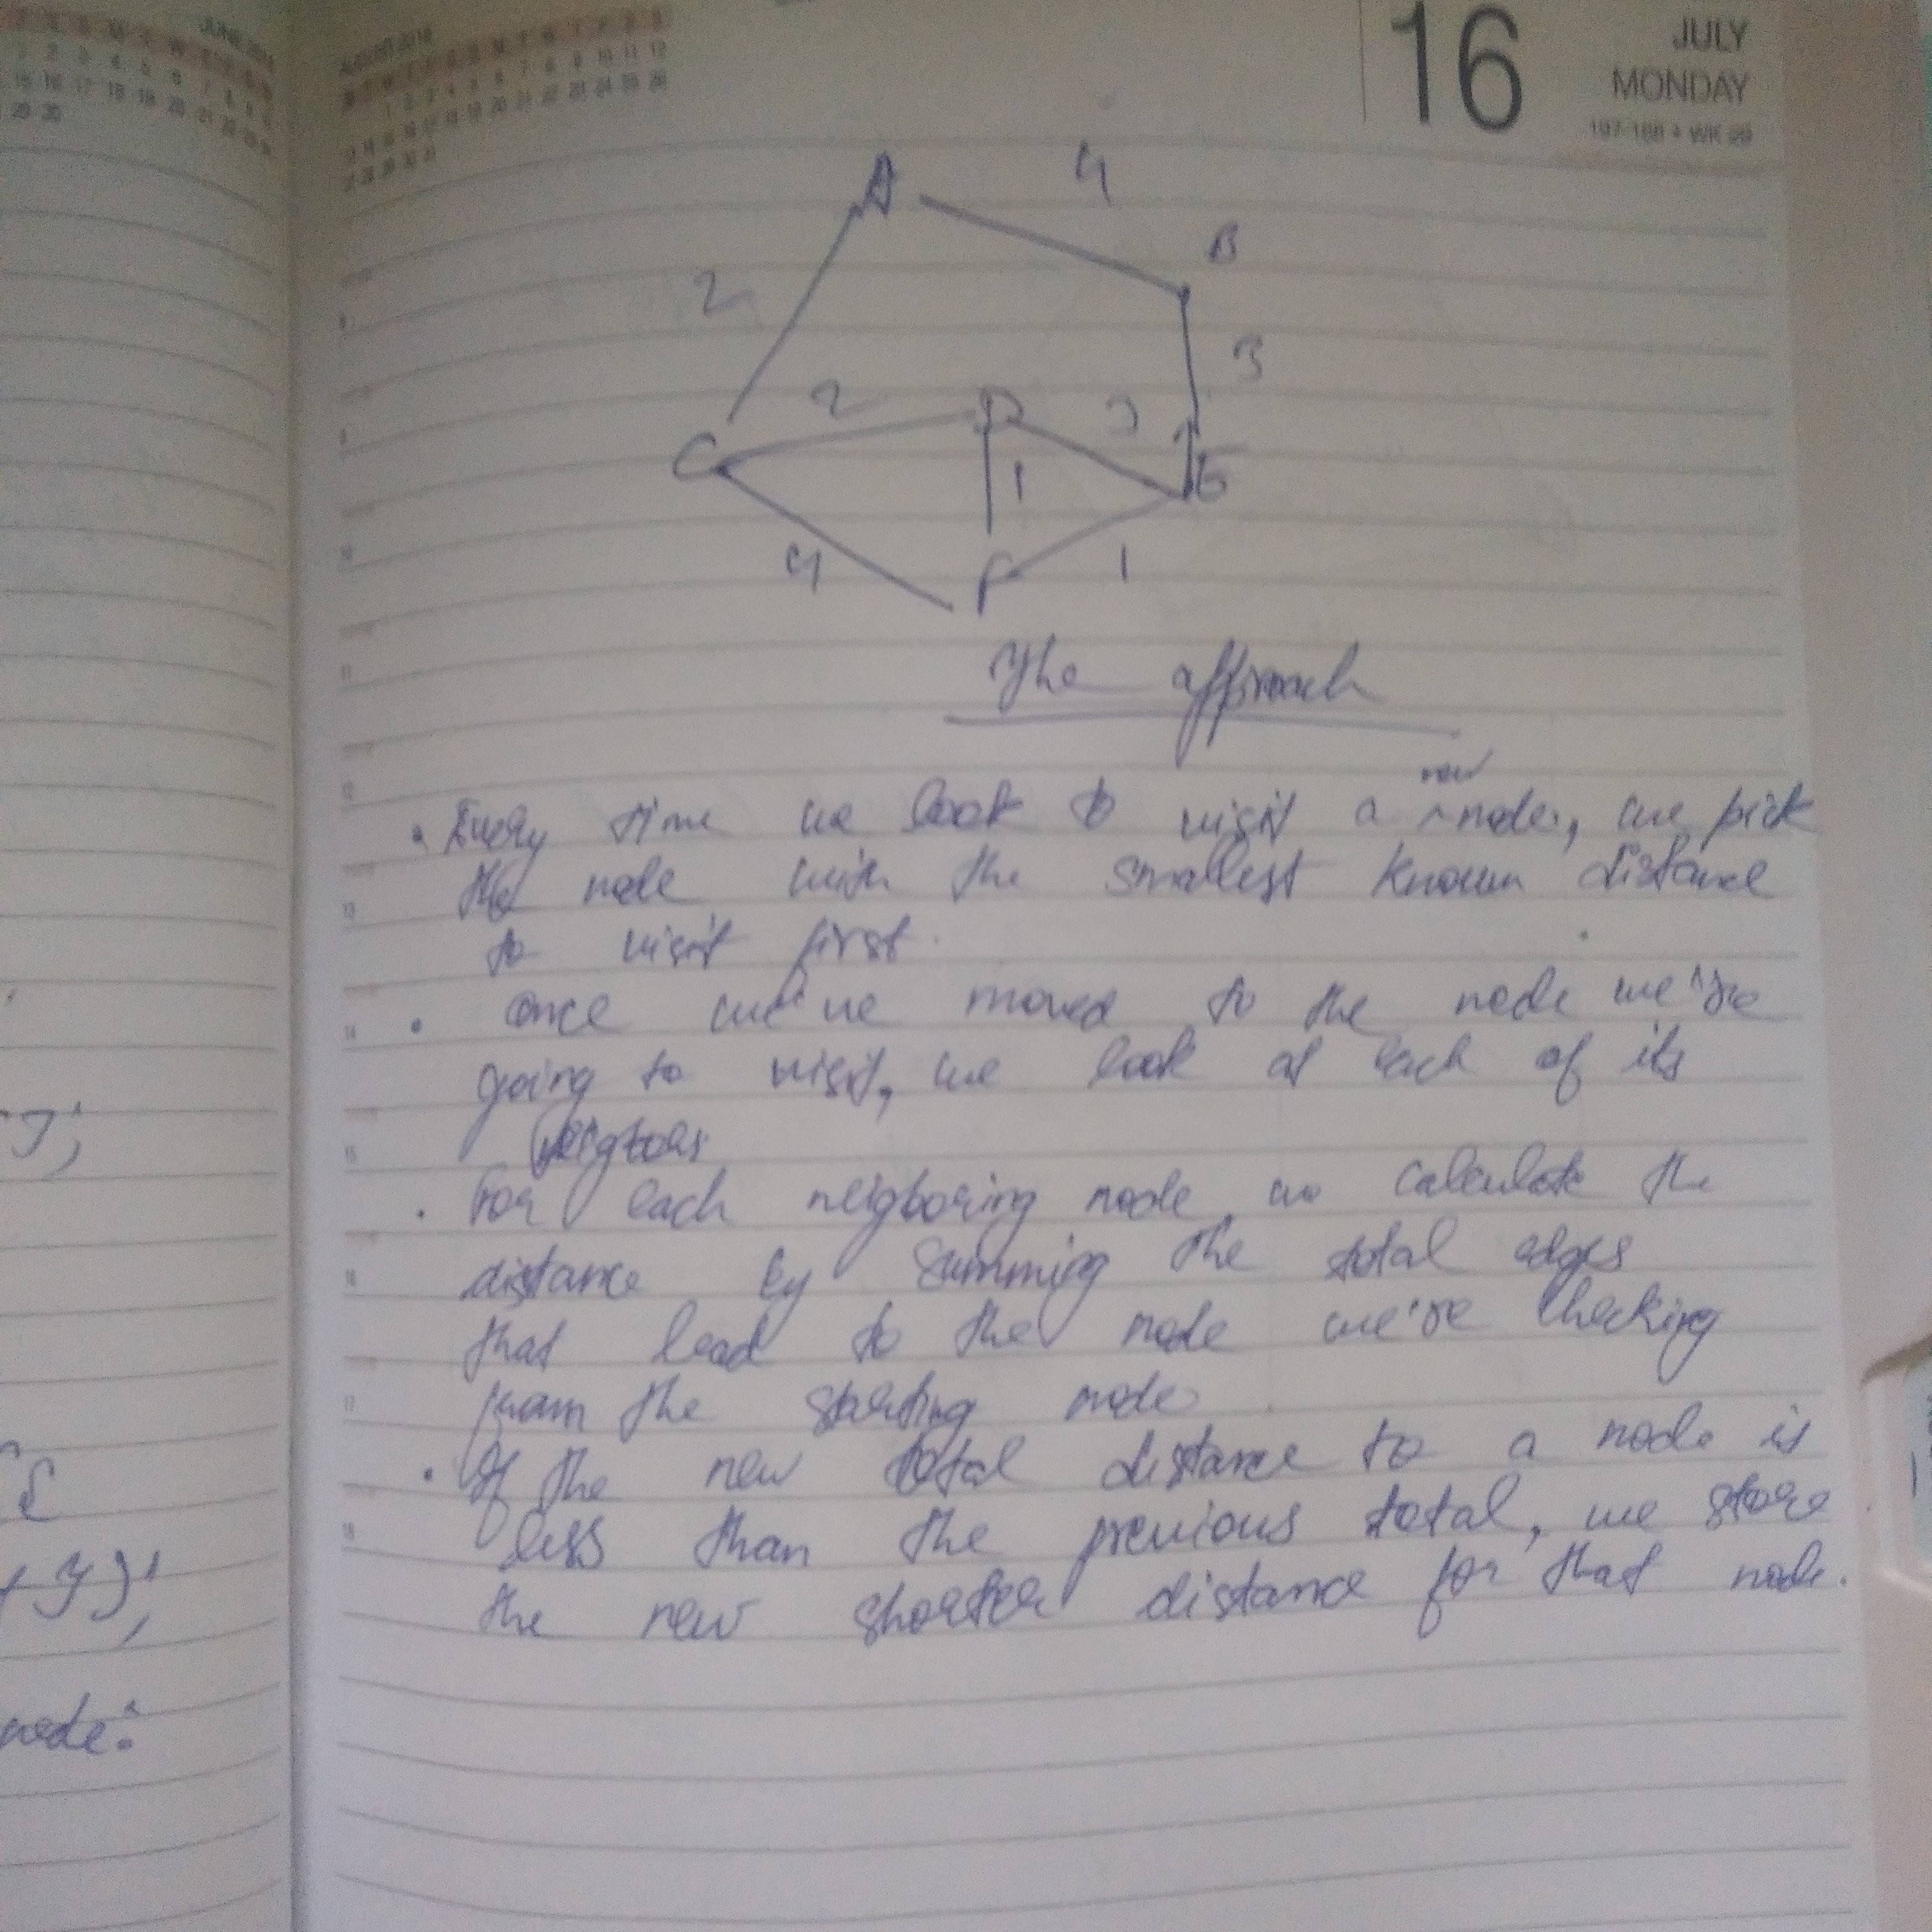 JUNE 2018
AUGUST 2018
16
JULY
MONDAY
A
4
B
2
3
2
D
3
C
1
E
4
F
1
The approach
new
• Every time we look to visit a ^ node, we pick
the node with the smallest known distance
to visit first.
• once we've moved to the node we're
going to visit, we look at each of its
neigbors
• For each neigboring node, we calculate the
distance by summing the total edges
that lead to the node we're checking
from the starting node
• If the new total distance to a node is
less than the previous total, we store
the new shorter distance for that node.
node: